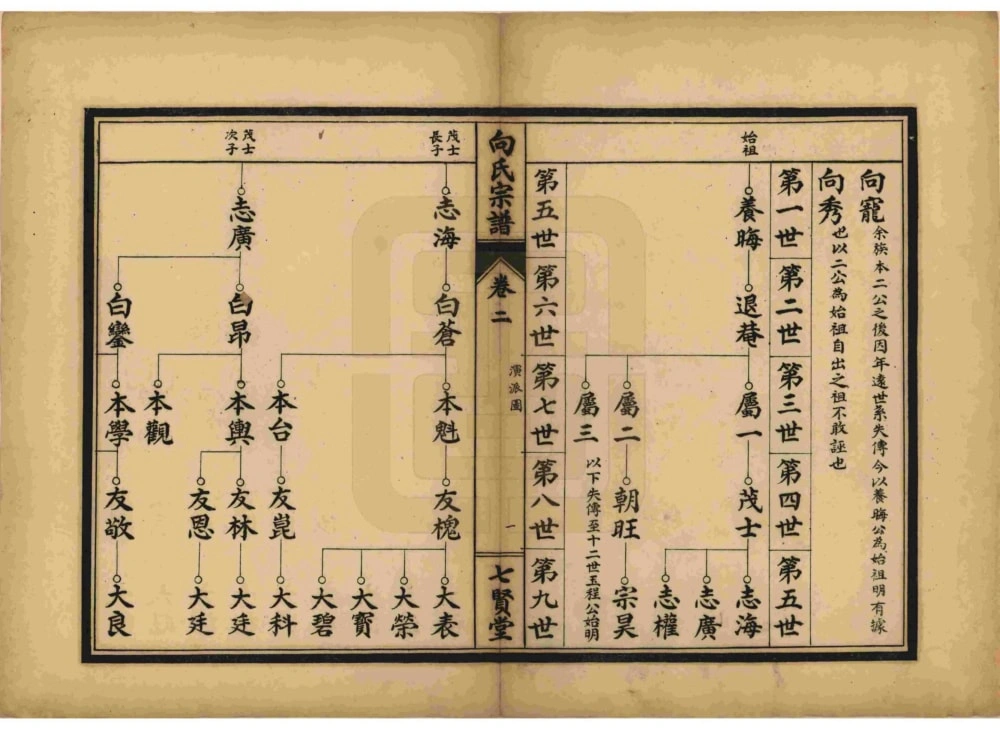 向寵 余族本二公之後因年遠世系失傳今以養晦公為始祖明有據
向秀 也以二公為始祖自出之祖不敢誣也
第一世
第二世
第三世
第四世
第五世
始祖
養晦
退菴
屬一
茂士
志海
志廣
志權
屬二
朝旺
宗昊
屬三
以下失傳至十二世玉程公始明
第五世
第六世
第七世
第八世
第九世
向氏宗譜
卷二
演派圖
一
七賢堂
茂士
長子
志海
白蒼
本魁
友槐
大表
大榮
大寶
大碧
本台
友崑
大科
茂士
次子
志廣
白昂
本輿
友林
大廷
友恩
大廷
本觀
白鑾
本學
友敬
大良